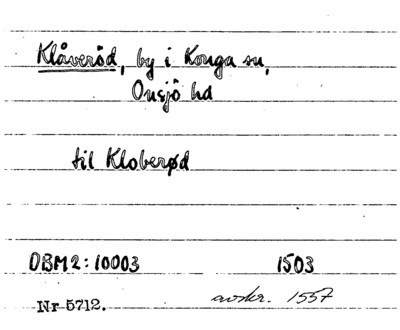 Klåveröd, by i Konga sn,
Onsjö hd
til Kloberød
DBM2:10003 1503
avskr. 1557
Nr 5712.